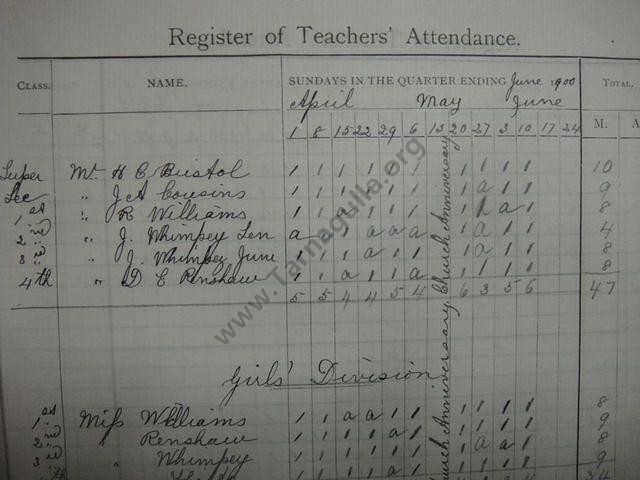 Register of Teachers' Attendance.
CLASS. NAME. SUNDAYS IN THE QUARTER ENDING June 1900 TOTAL.
April May June
1 8 15 22 29 6 13 20 27 3 10 17 24 M. A
Super Mr H C Bristol 1 1 1 1 1 1 1 1 1 1 10
Sec " J A Cousins 1 1 1 1 1 1 1 a 1 1 9
1st " R Williams 1 1 a 1 1 1 1 1 a 1 8
2nd " J. Whimpey Sen a 1 1 a a a 1 a 1 1 4
3rd " J. Whimpey June 1 1 1 a 1 1 1 a 1 1 8
4th " D E Renshaw 1 1 a 1 1 a 1 1 1 1 8
5 5 4 4 5 4 6 3 5 6 47
Church Anniversary
Girls' Division
1st Miss Williams 1 1 a a 1 1 1 1 1 1 8
2nd " Renshaw 1 1 1 1 a 1 1 1 1 1 9
3rd " Whimpey 1 1 1 1 1 1 1 a a 1 8
1 1 1 1 a 1 1 1 1 1 9
Church Anniversary
www.Tarnagulla.org